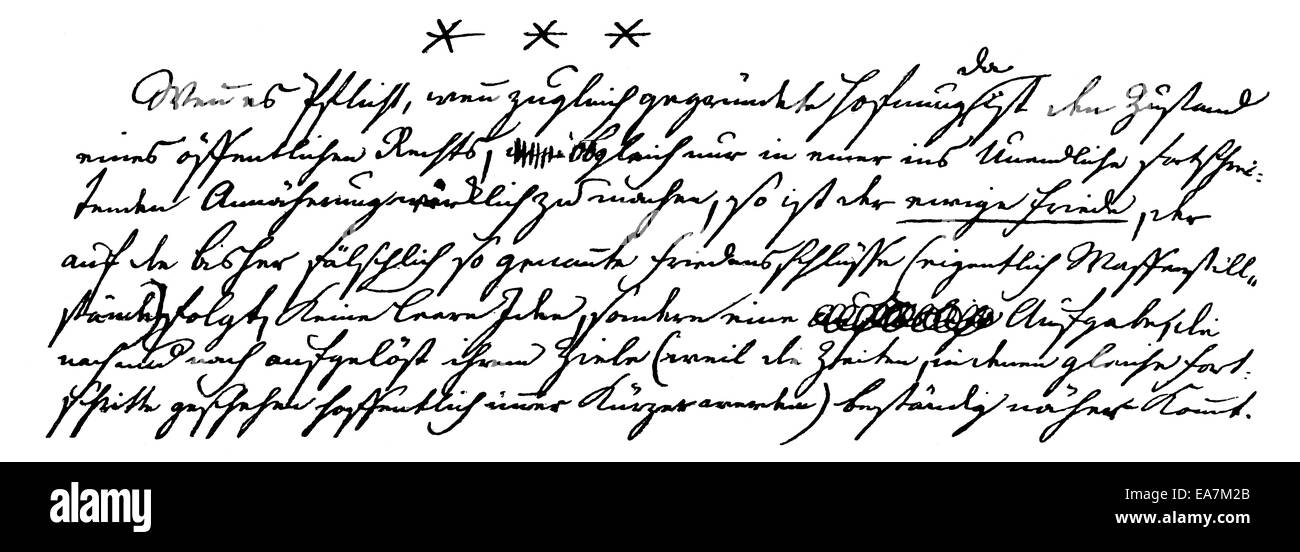 * * *
da
Wenn es Pflicht, wenn zugleich gegründete Hofnung ist den Zustand
eines öffentlichen Rechts, obgleich nur in einer ins Unendliche fortschrei-
tenden Annäherung wirklich zu machen, so ist der ewige Friede, der
auf die bisher fälschlich so genannte Friedensschlüsse (eigentlich Waffenstill-
stände) folgt, keine leere Idee, sondern eine Aufgabe, die
nach und nach aufgelöst ihrem Ziele (weil die Zeiten, in denen gleiche Fort-
schritte geschehen hoffentlich immer kürzer werden) beständig näher kommt.
alamy
alamy
EA7M2B
www.alamy.com